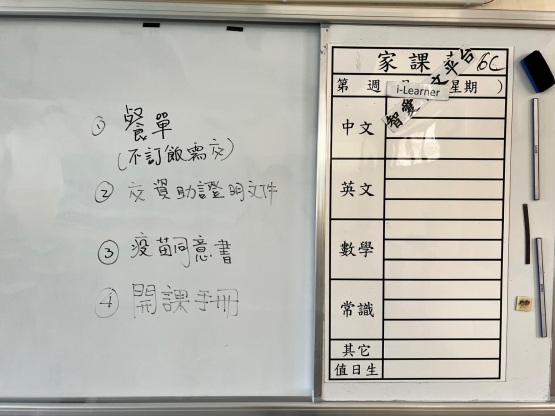 ① 餐單
(不訂飯需交)
② 交資助證明文件
③ 疫苗同意書
④ 開課手冊
家課 6C
第 週 星期 )
i-Learner
智愛中文平台
中文
英文
數學
常識
其它
值日生